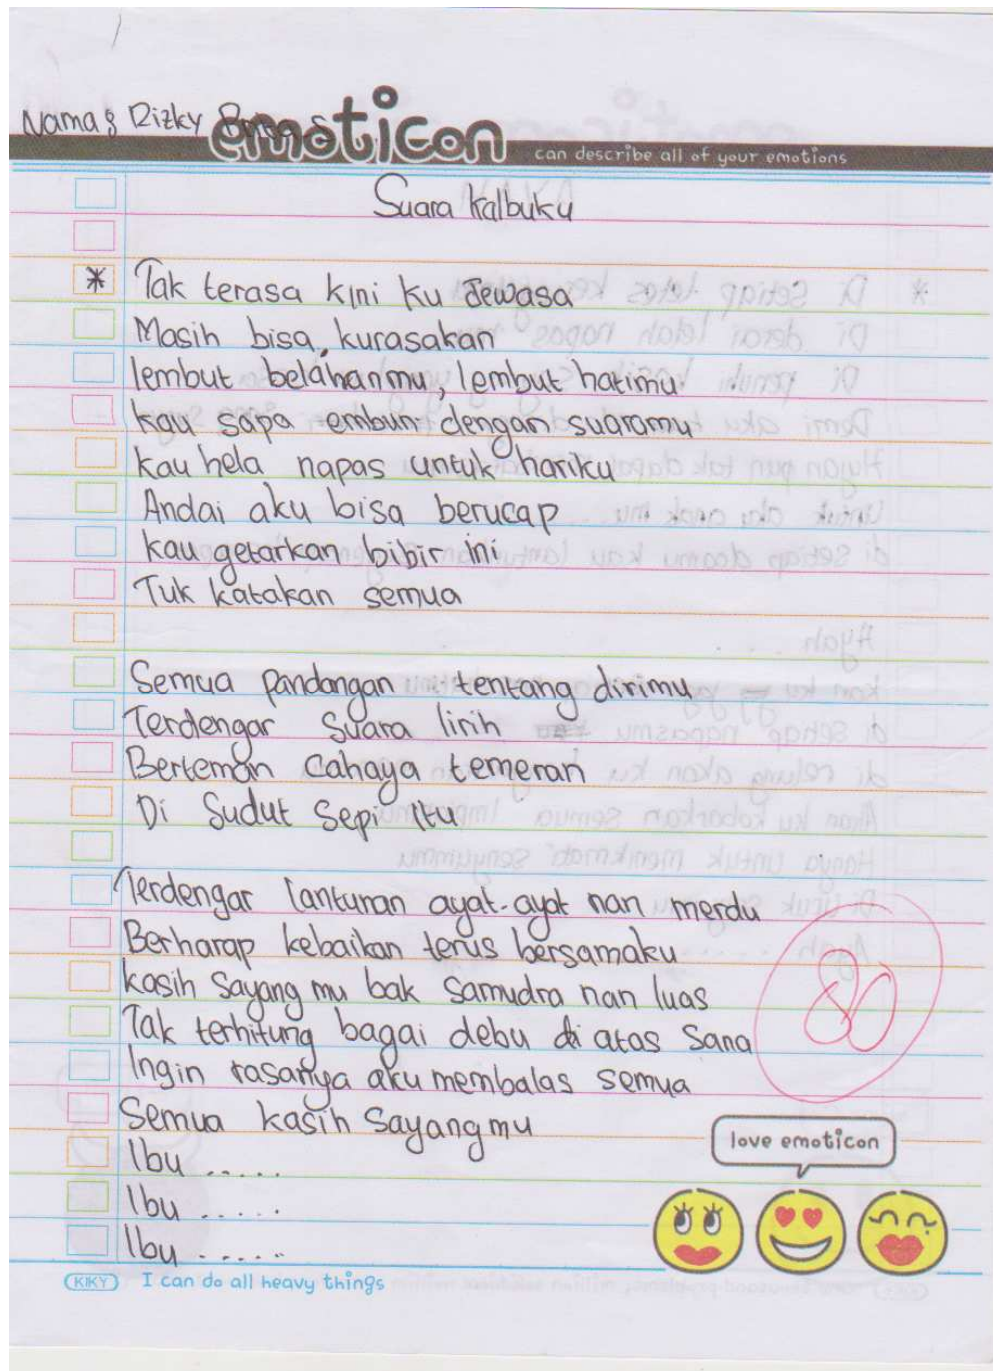 Nama : Rizky
emoticon
can describe all of your emotions
Suara Kalbuku
* Tak terasa kini ku dewasa
Masih bisa kurasakan
lembut belaianmu, lembut hatimu
kau sapa embun dengan suaramu
kau hela napas untuk hariku
Andai aku bisa berucap
kau getarkan bibir ini
Tuk katakan semua
Semua pandangan tentang dirimu
Terdengar suara lirih
Berteman Cahaya temeran
Di Sudut Sepi Itu
Terdengar lanturan ayat-ayat nan merdu
Berharap kebaikan terus bersamaku
kasih Sayang mu bak Samudra nan luas
Tak terhitung bagai debu di atas sana
Ingin rasanya aku membalas semua
Semua kasih Sayang mu
Ibu .....
Ibu .....
Ibu .....
80
love emoticon
KIKY I can do all heavy things